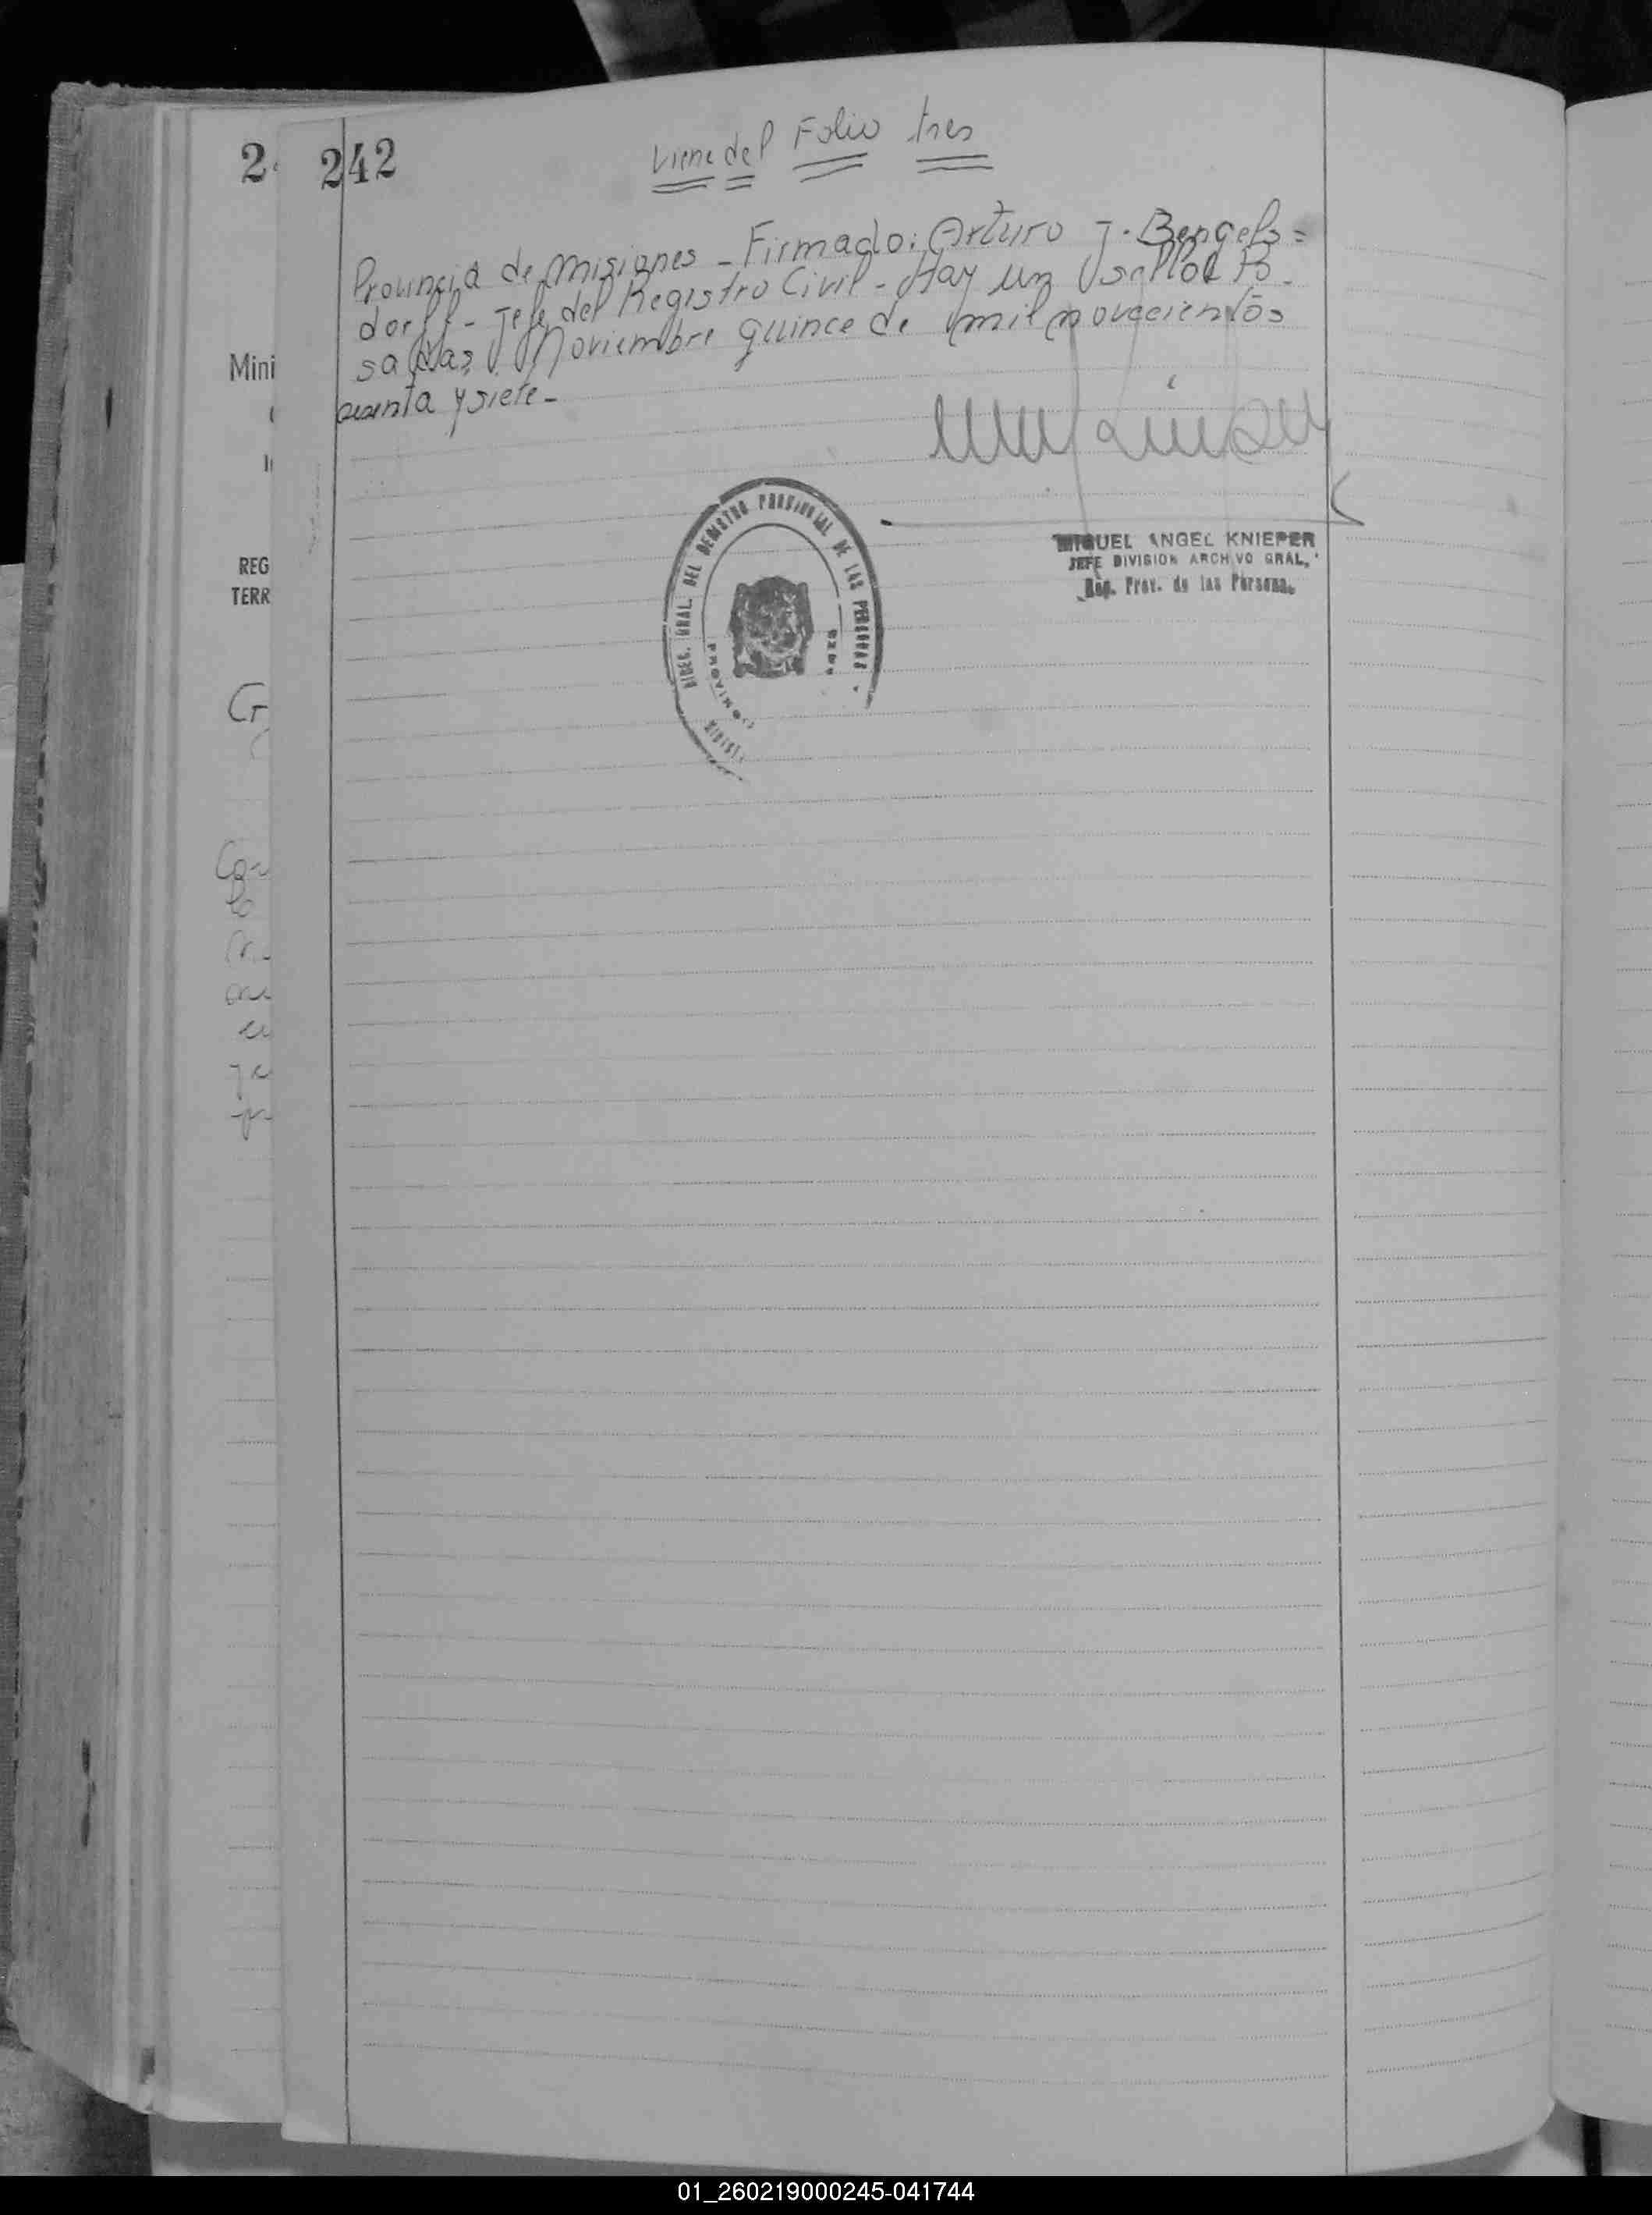 242
Viene del Folio tres
Provincia de Misiones - Firmado: Arturo J. Bengels=
dorff - Jefe del Registro Civil - Hay un sello Po
sadas, Noviembre quince de mil novecientos
cuenta y siete -
DIREC. GRAL. DEL REGISTRO PROVINCIAL DE LAS PERSONAS
MIGUEL ANGEL KNIEPER
JEFE DIVISION ARCHIVO GRAL.
Reg. Prov. de las Persona
2
Mini
REG
TERR
G
Con
01_260219000245-041744